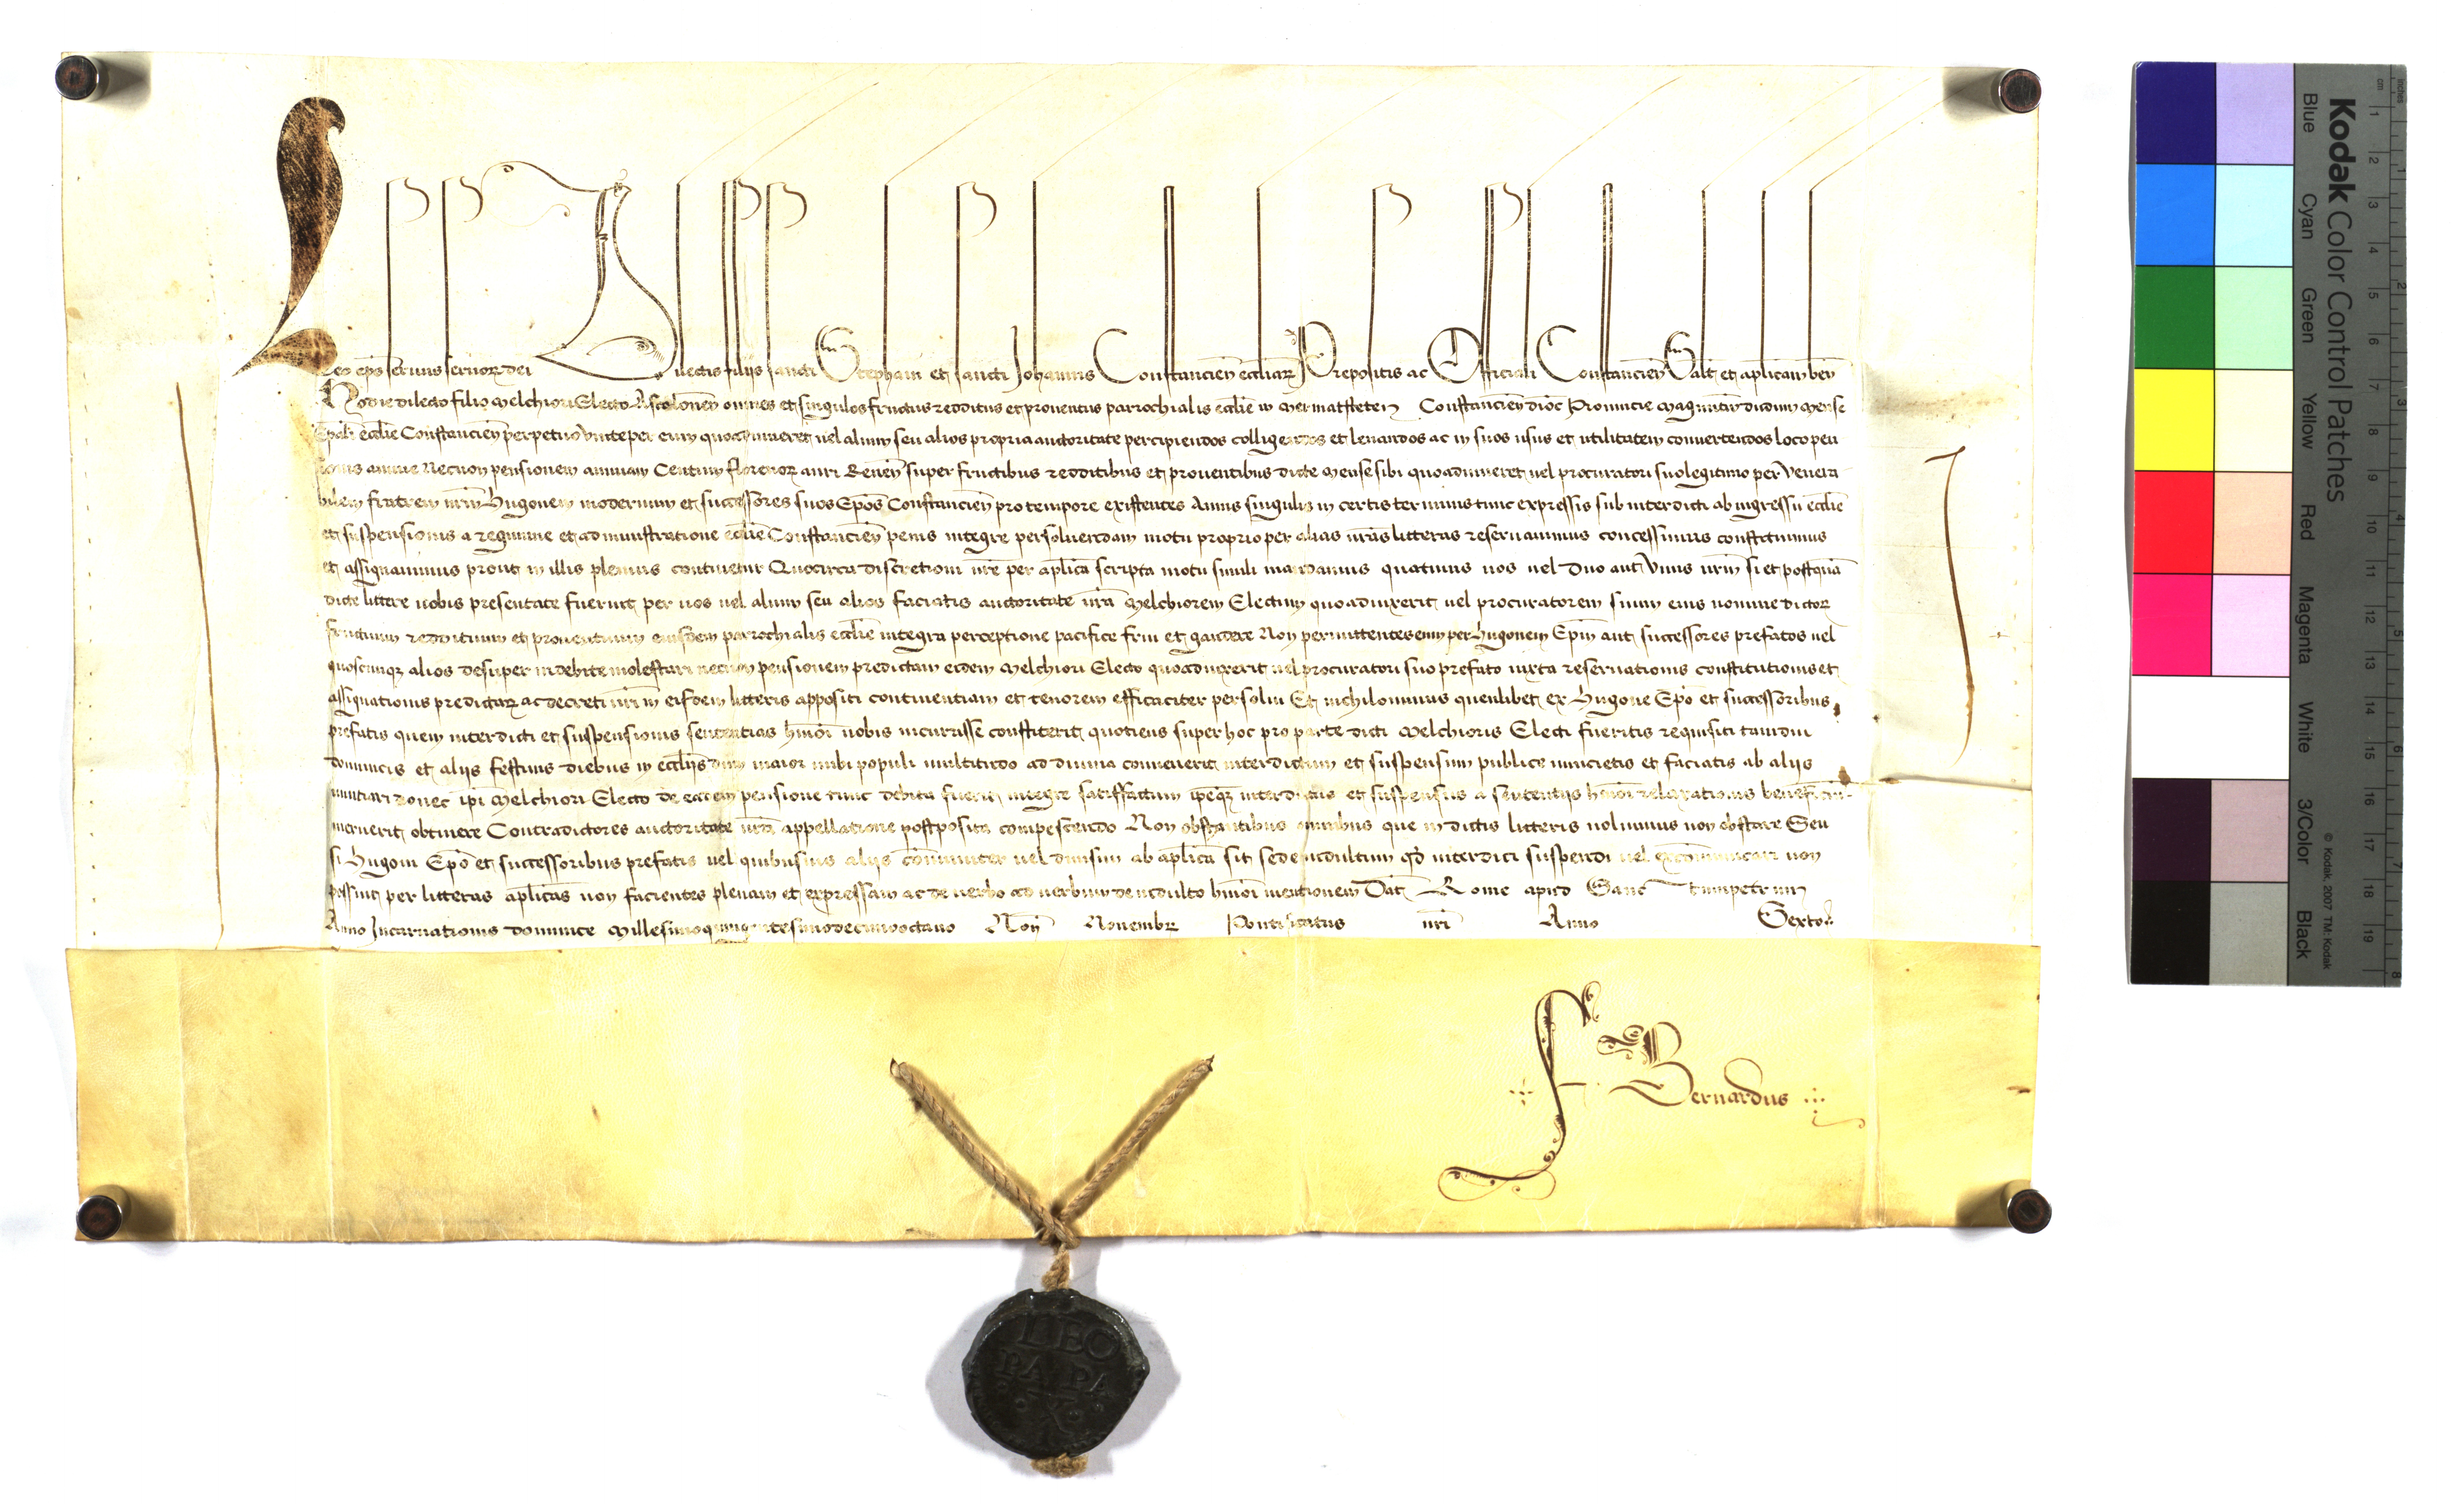 Leo ep̄s servus servor dei Dilectis filiis sancti Stephani et sancti Johannis Constancien̄ eccliar Prepositis ac Officiali Constancien̄ Salt et aplicam ben̄
Hodie dilecto filio Melchiori Electo Ascolonen̄ omnes et singulos fructus redditus et proventus parrochialis ecclie in Constancien̄ dioc Provincie Maguntin dudum Mense
Ep̄ali ecclie Constancien̄ perpetuo unite per eum quoad viveret vel alium seu alios propria auctoritate percipiendos colligendos et levandos ac in suos usus et utilitatem convertendos loco pen
sionis annue Necnon pensionem annuam Centum florenor auri Renen̄ super fructibus redditibus et proventibus dicte Mense sibi quoad viveret vel procuratori suo legitimo per Venera
bilem fratrem nrm̄ Hugonem modernum et successores suos Ep̄os Constancien̄ pro tempore existentes Annis singulis in certis terminis tunc expressis sub interdicti ab ingressu ecclie
et suspensionis a regimine et administratione ecclie Constancien̄ penis integre persolvendam motu proprio per alias nrās litteras reservavimus concessimus constituimus
et assignavimus prout in illis plenius continetur Quocirca discretioni vre per aplica scripta motu simili mandamus quatinus vos vel Duo aut Unus vrm̄ si et postquā
dicte littere vobis presentate fuerint per vos vel alium seu alios faciatis auctoritate nrā Melchiorem Electum quoad vixerit vel procuratorem suum eius nomine dictor
fructuum reddituum et proventuum eiusdem parrochialis ecclie integra perceptione pacifice frui et gaudere Non permittentes eum per Hugonem Ep̄m aut successores prefatos vel
quoscunq alios desuper indebite molestari necnon pensionem predictam eidem Melchiori Electo quoad vixerit vel procuratori suo prefato iuxta reservationis constitutionis et
assignationis predictar ac decreti nrī in eisdem litteris appositi continentiam et tenorem efficaciter persolvi Et nichilominus quenlibet ex Hugone Ep̄o et successoribus
prefatis quem interdicti et suspensionis sententias hmōi vobis incurrisse constiterit quotiens super hoc pro parte dicti Melchioris Electi fueritis requisiti tamdiu
dominicis et aliis festivis diebus in ecclīis dum maior inibi populi multitudo ad divina convenerit interdictum et suspensum publice nuncietis et faciatis ab aliis
nuntiari donec ip̄i Melchiori Electo de eadem pensione tunc debita fuerit integre satisfactum ipseq interdictus et suspensus a sententiis hmōi relaxationis
meruerit obtinere Contradictores auctoritate nrā appellatione postposita compescendo Non obstantibus omnibus que in dictis litteris volumus non obstare Seu
si Hugoni Ep̄o et successoribus prefatis vel quibusvis aliis cōmuniter vel divisim ab aplica sit sede indultum qd̄ interdici suspendi vel excōmunicari non
possint per litteras aplicas non facientes plenam et expressam ac de verbo ad verbum de indulto hmōi mentionem Dat Rome apud Sanctumpetrum
Anno Incarnationis dominice Millesimoquingentesimodecimooctavo Non̄ Novembr Pontificatus nrī Anno Sexto
F Bernardus
LEO
PAPA
X
Kodak Color Control Patches
Blue Cyan Green Yellow Red Magenta White 3/Color Black
© Kodak, 2007 TM: Kodak
cm 1 2 3 4 5 6 7 8 9 10 11 12 13 14 15 16 17 18 19
inches 1 2 5 6 7 8